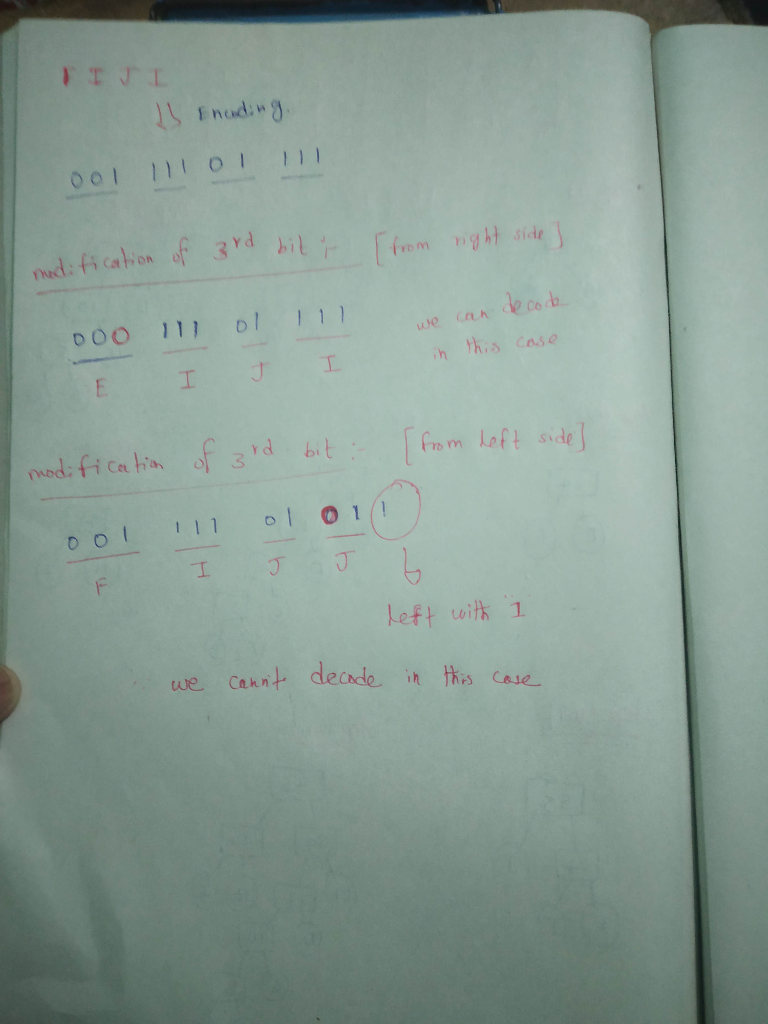 FIJI
⇓ Encoding.
001 111 01 111
modification of 3rd bit :- [from right side]
000 111 01 111
E I J I
we can decode
in this case
modification of 3rd bit :- [from Left side]
001 111 01 01 1
F I J J
Left with 1
we cannt decode in this case